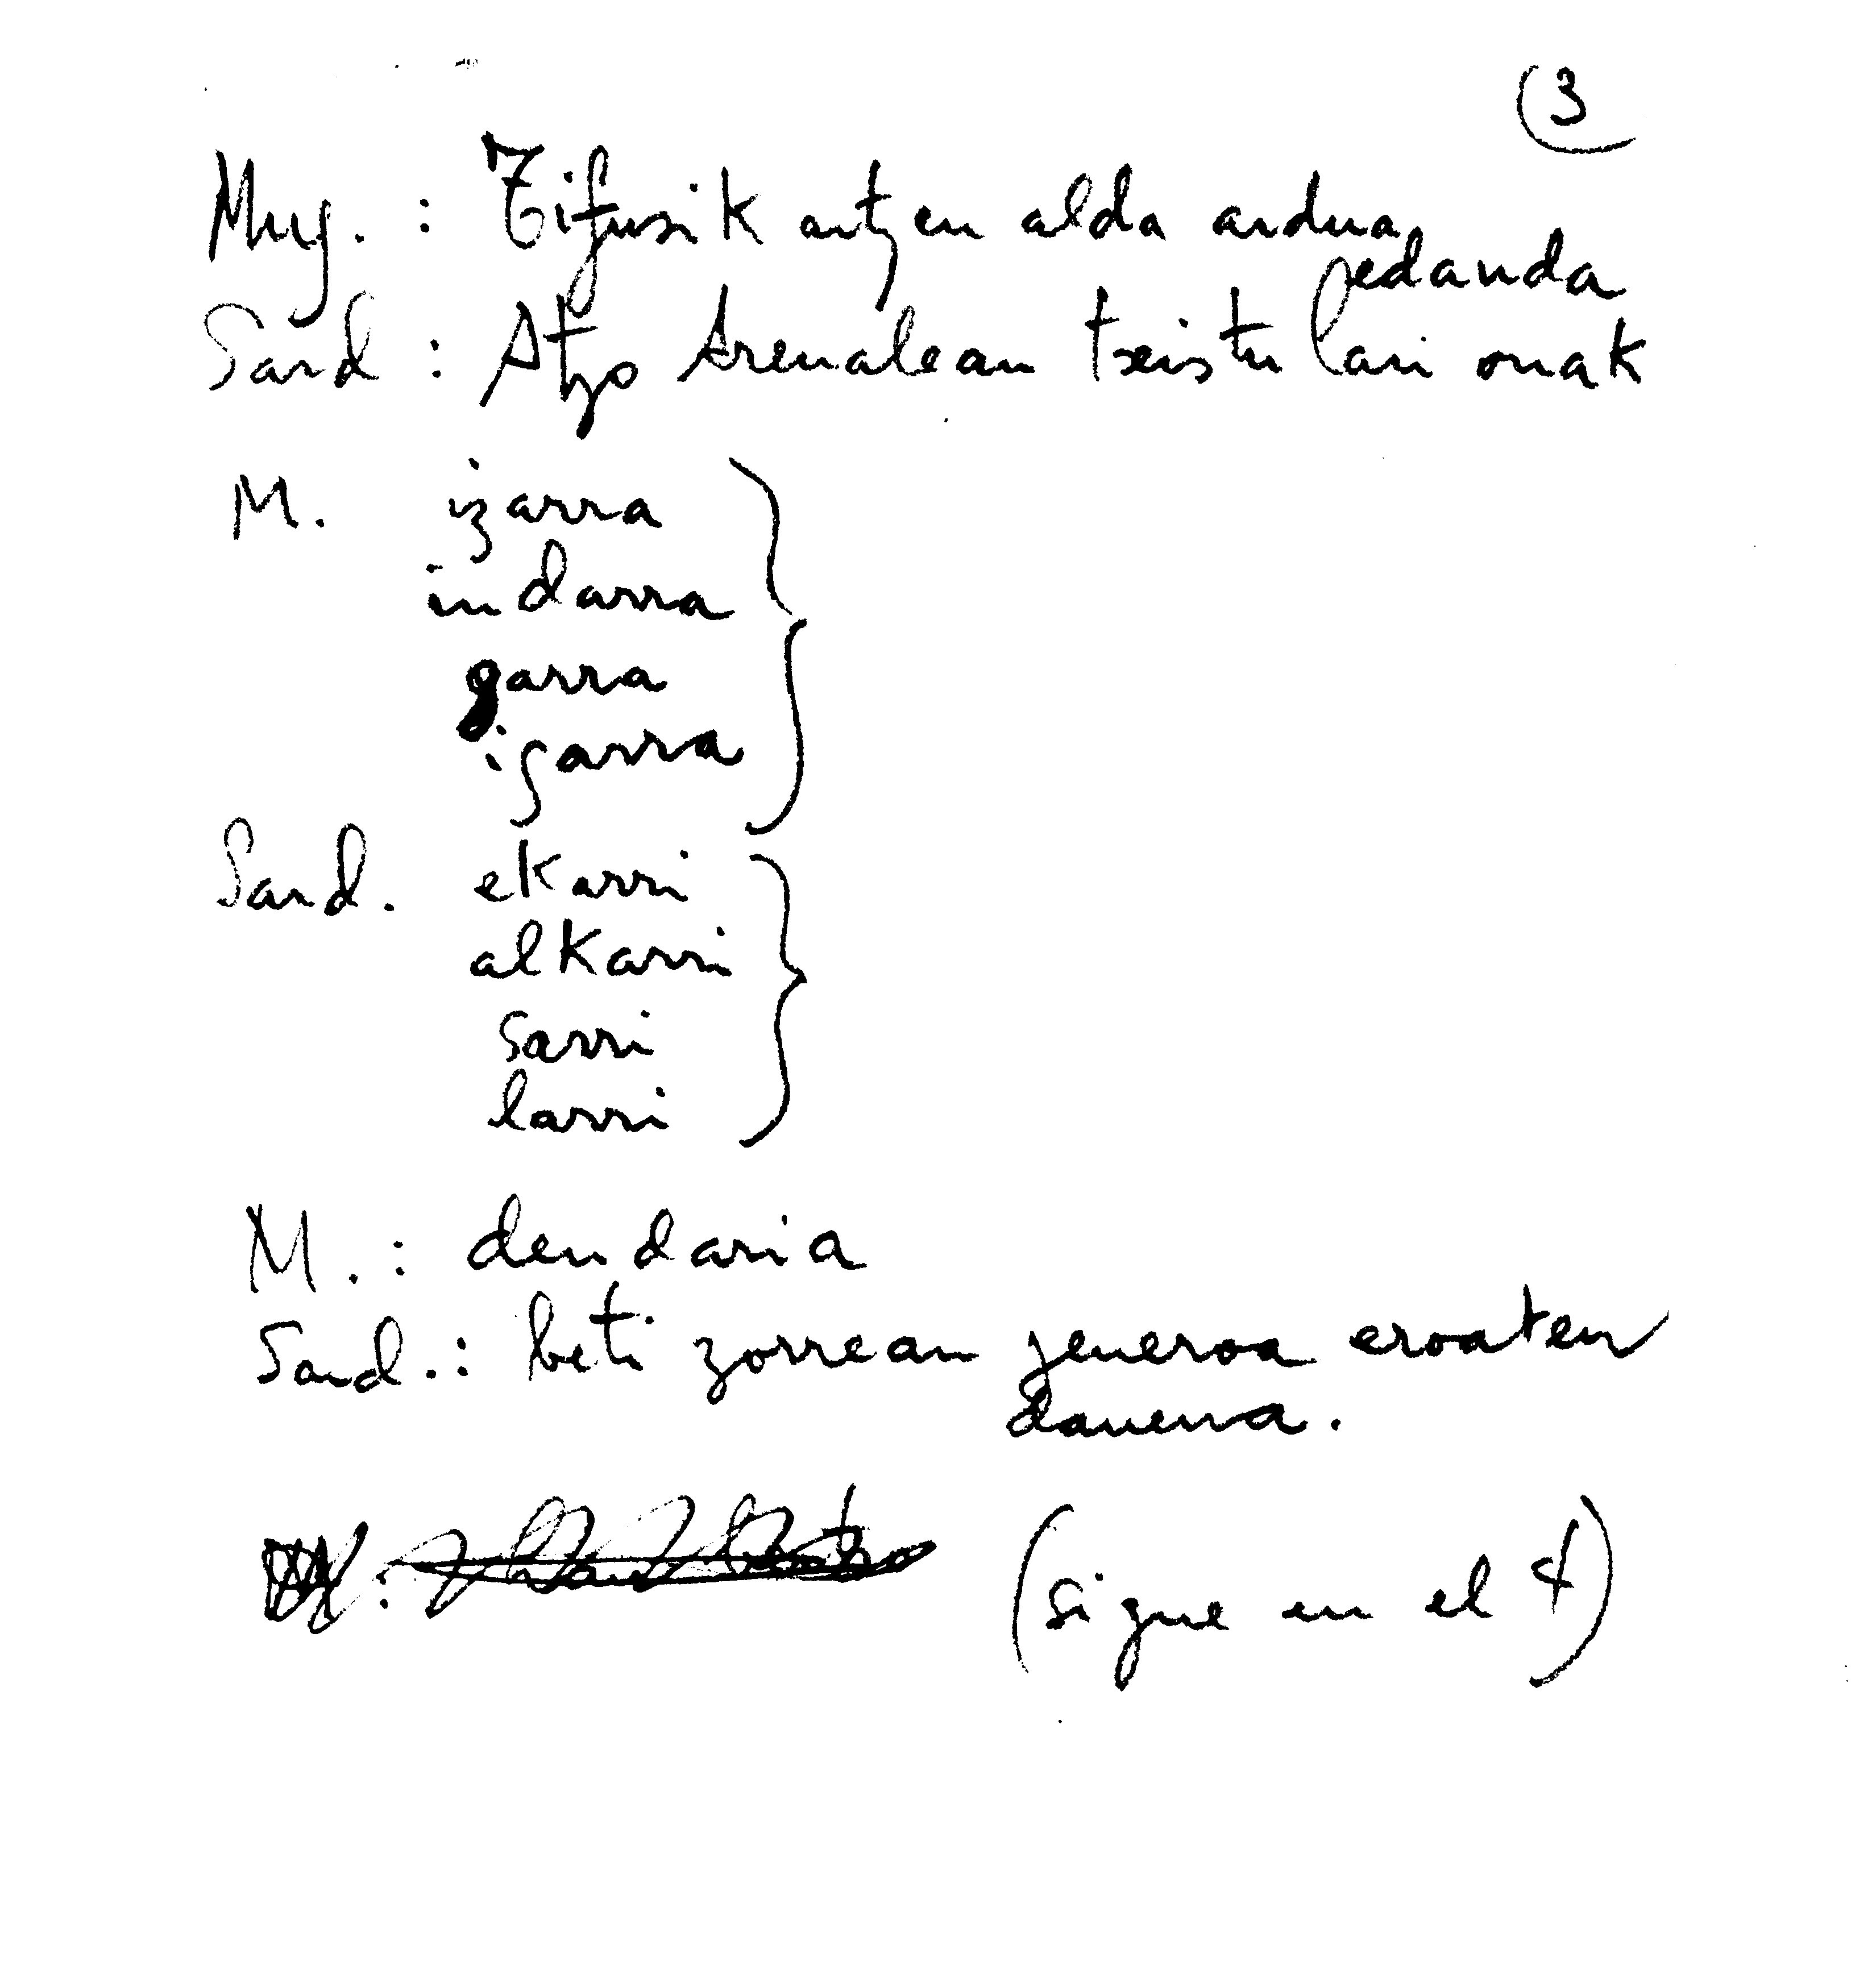 3
Muj. : Tifusik artzen alda ardua
edanda
Sard : Atzo Arenalean txistu lari onak
M. izarra
indarra
garra
igarra
Sard. ekarri
alkarri
sarri
larri
M. : dendaria
Sard. : beti zorrean jeneroa eroaten
dauena.
(sigue en el 4)